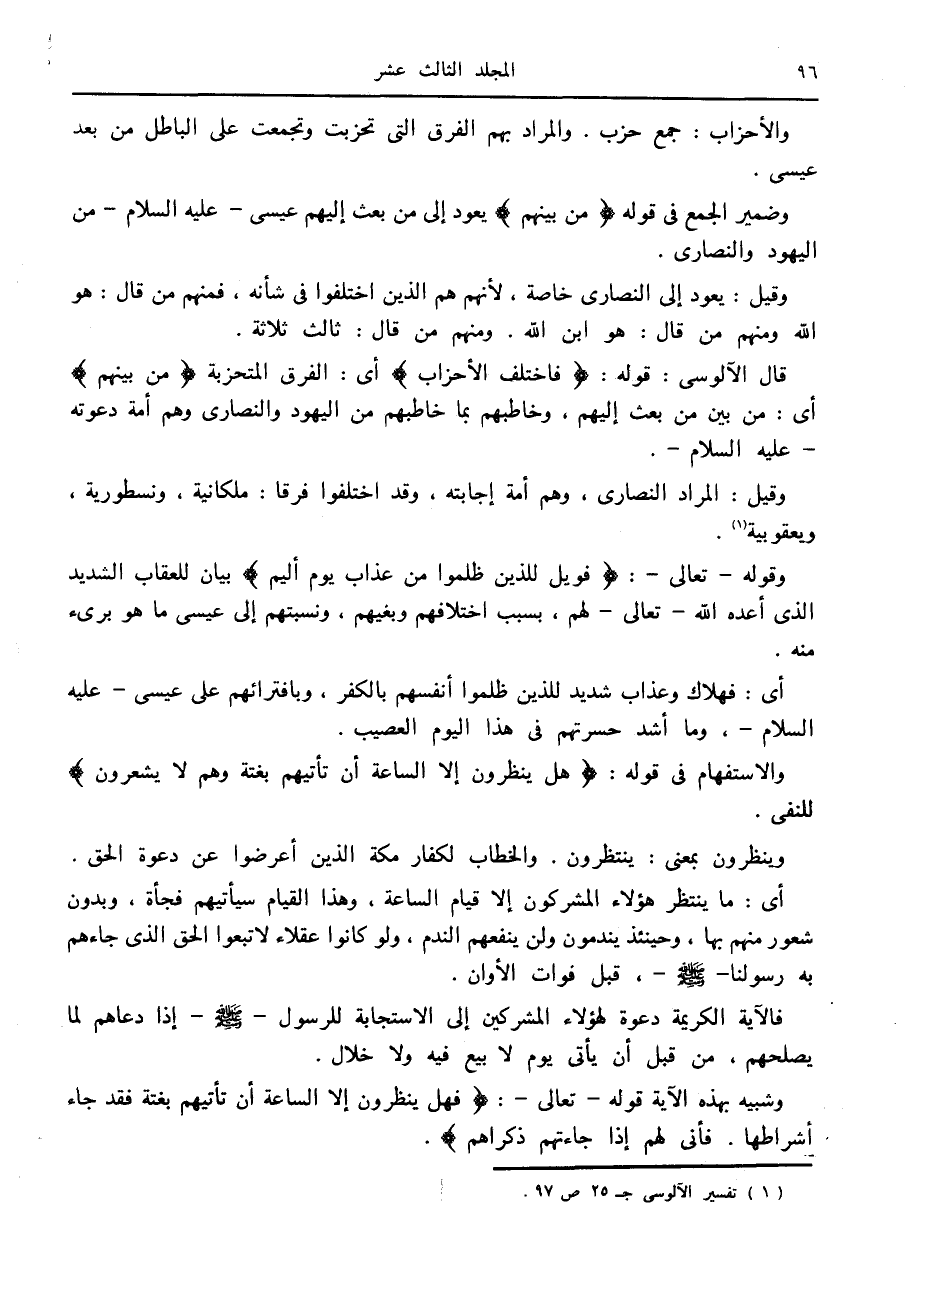 ٩٦ المجلد الثالث عشر
والأحزاب : جمع حزب . والمراد بهم الفرق التى تحزبت وتجمعت على الباطل من بعد
عيسى .
وضمير الجمع فى قوله ﴿ من بينهم ﴾ يعود إلى من بعث إليهم عيسى - عليه السلام - من
اليهود والنصارى .
وقيل : يعود إلى النصارى خاصة ، لأنهم هم الذين اختلفوا فى شأنه ، فمنهم من قال : هو
الله ومنهم من قال : هو ابن الله . ومنهم من قال : ثالث ثلاثة .
قال الآلوسى : قوله : ﴿ فاختلف الأحزاب ﴾ أى : الفرق المتحزبة ﴿ من بينهم ﴾
أى : من بين من بعث إليهم ، وخاطبهم بما خاطبهم من اليهود والنصارى وهم أمة دعوته
- عليه السلام - .
وقيل : المراد النصارى ، وهم أمة إجابته ، وقد اختلفوا فرقا : ملكانية ، ونسطورية ،
ويعقوبية(١) .
وقوله - تعالى - : ﴿ فويل للذين ظلموا من عذاب يوم أليم ﴾ بيان للعقاب الشديد
الذى أعده الله - تعالى - لهم ، بسبب اختلافهم وبغيهم ، ونسبتهم إلى عيسى ما هو برىء
منه .
أى : فهلاك وعذاب شديد للذين ظلموا أنفسهم بالكفر ، وبافترائهم على عيسى - عليه
السلام - ، وما أشد حسرتهم فى هذا اليوم العصيب .
والاستفهام فى قوله : ﴿ هل ينظرون إلا الساعة أن تأتيهم بغتة وهم لا يشعرون ﴾
للنفى .
وينظرون بمعنى : ينتظرون . والخطاب لكفار مكة الذين أعرضوا عن دعوة الحق .
أى : ما ينتظر هؤلاء المشركون إلا قيام الساعة ، وهذا القيام سيأتيهم فجأة ، وبدون
شعور منهم بها ، وحينئذ يندمون ولن ينفعهم الندم ، ولو كانوا عقلاء لاتبعوا الحق الذى جاءهم
به رسولنا- ﷺ - ، قبل فوات الأوان .
فالآية الكريمة دعوة لهؤلاء المشركين إلى الاستجابة للرسول - ﷺ - إذا دعاهم لما
يصلحهم ، من قبل أن يأتى يوم لا بيع فيه ولا خلال .
وشبيه بهذه الآية قوله - تعالى - : ﴿ فهل ينظرون إلا الساعة أن تأتيهم بغتة فقد جاء
أشراطها . فأنى لهم إذا جاءتهم ذكراهم ﴾ .
( ١ ) تفسير الآلوسى جـ ٢٥ ص ٩٧ .